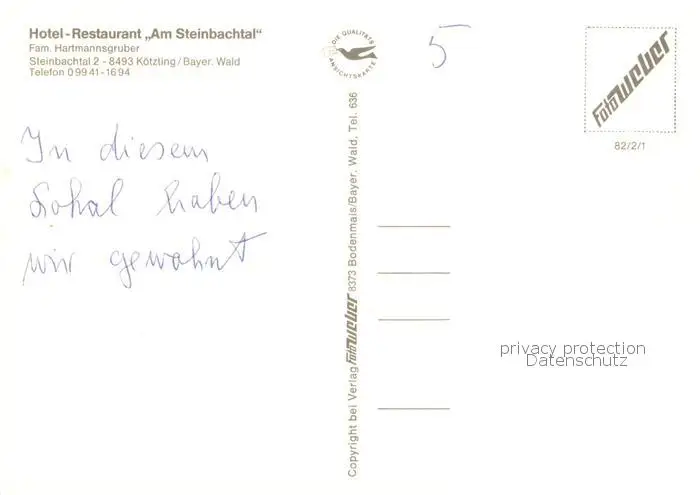 Hotel-Restaurant „Am Steinbachtal"
Fam. Hartmannsgruber
Steinbachtal 2 - 8493 Kötzting/Bayer. Wald
Telefon 09941-1694
In diesem
Lokal haben
wir gewohnt
DIE QUALITÄTS
ANSICHTSKARTE
5
Copyright bei Verlag Foto Weber 8373 Bodenmais/Bayer. Wald, Tel. 636
Foto Weber
82/2/1
privacy protection
Datenschutz